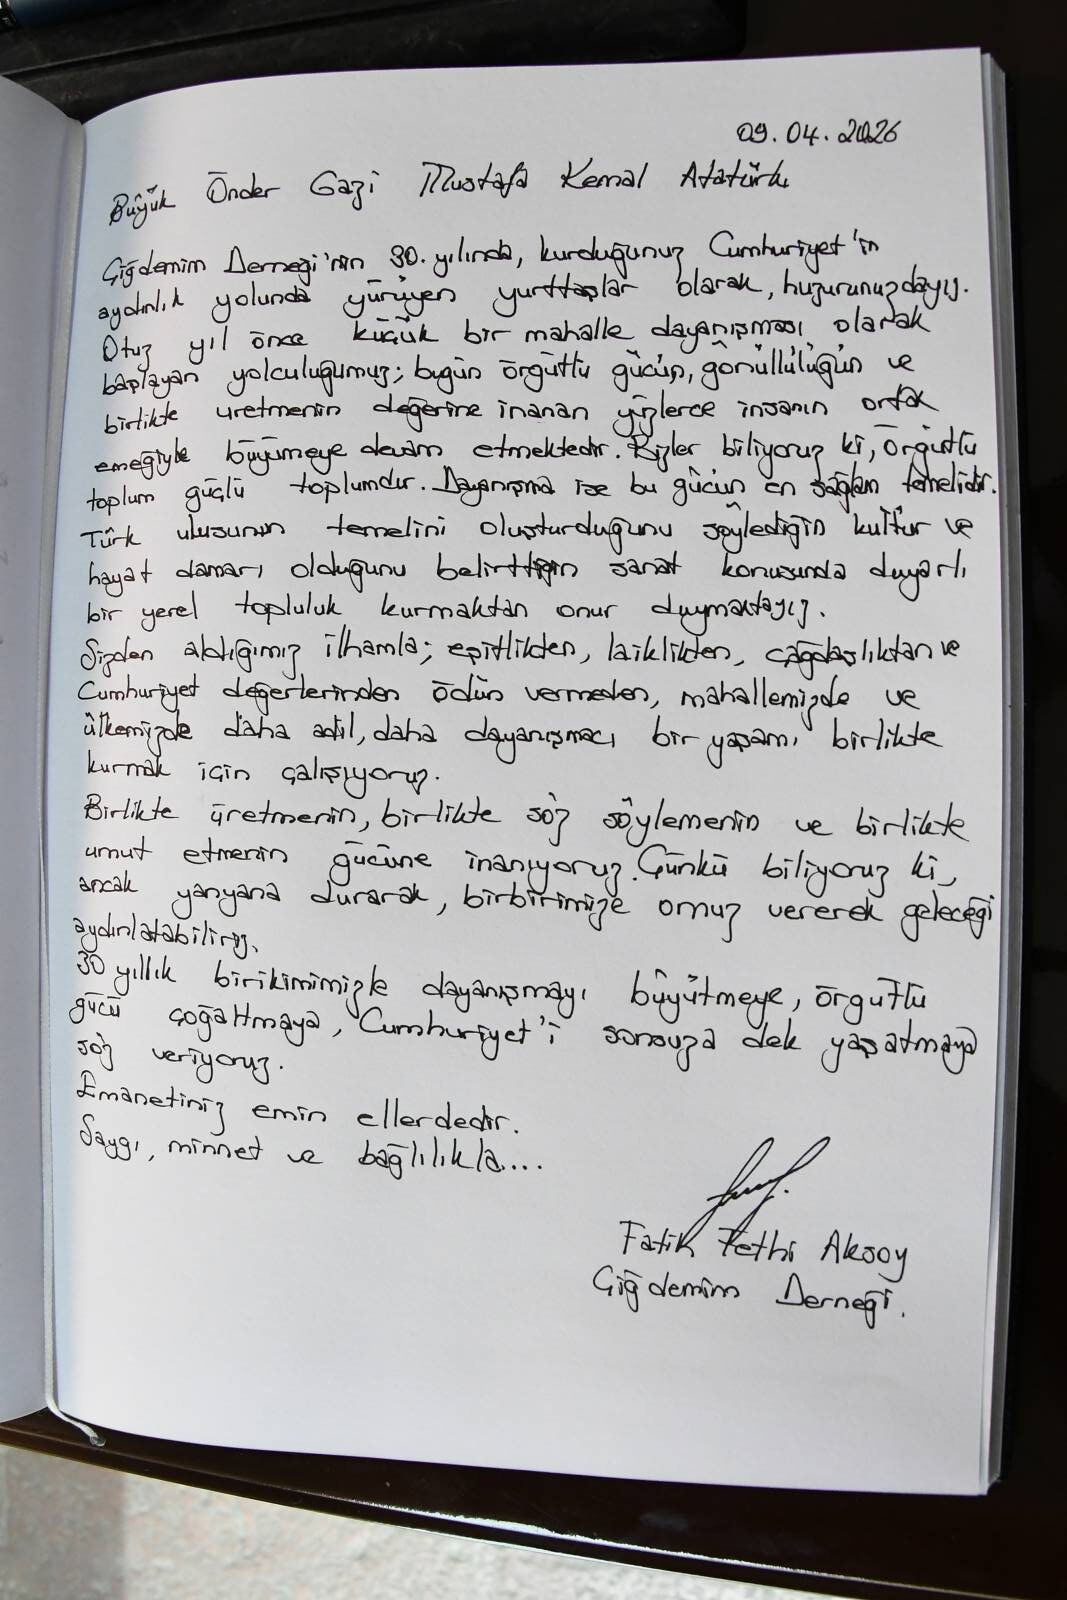 09.04.2026
Büyük Önder Gazi Mustafa Kemal Atatürk
Çiğdemim Derneği'nin 30. yılında, kurduğunuz Cumhuriyet'in
aydınlık yolunda yürüyen yurttaşlar olarak, huzurunuzdayız.
Otuz yıl önce küçük bir mahalle dayanışması olarak
başlayan yolculuğumuz; bugün örgütlü gücün, gönüllülüğün ve
birlikte üretmenin değerine inanan yüzlerce insanın ortak
emeğiyle büyümeye devam etmektedir. Bizler biliyoruz ki, örgütlü
toplum güçlü toplumdur. Dayanışma ise bu gücün en sağlam temelidir.
Türk ulusunun temelini oluşturduğunu söylediğin kültür ve
hayat damarı olduğunu belirttiğin sanat konusunda duyarlı
bir yerel topluluk kurmaktan onur duymaktayız.
Sizden aldığımız ilhamla; eşitlikten, laiklikten, çağdaşlıktan ve
Cumhuriyet değerlerinden ödün vermeden, mahallemizde ve
ülkemizde daha adil, daha dayanışmacı bir yaşamı birlikte
kurmak için çalışıyoruz.
Birlikte üretmenin, birlikte söz söylemenin ve birlikte
umut etmenin gücüne inanıyoruz. Çünkü biliyoruz ki,
ancak yanyana durarak, birbirimize omuz vererek geleceği
aydınlatabiliriz.
30 yıllık birikimimizle dayanışmayı büyütmeye, örgütlü
gücü çoğaltmaya, Cumhuriyet'i sonsuza dek yaşatmaya
söz veriyoruz.
Emanetiniz emin ellerdedir.
Saygı, minnet ve bağlılıkla....
Fatih Fethi Aksoy
Çiğdemim Derneği.